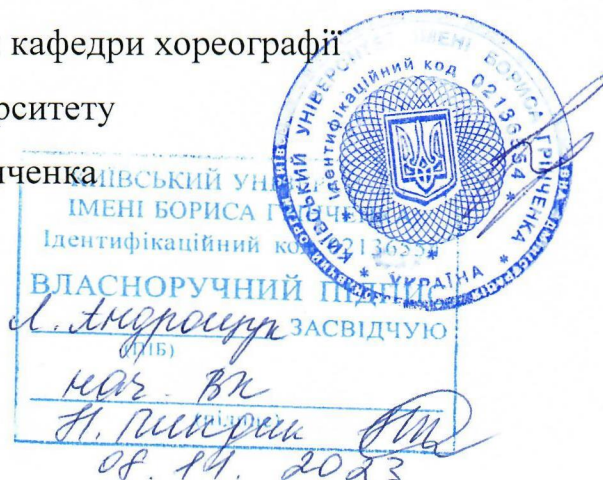 кафедри хореографії
рситету
ченка
КИЇВСЬКИЙ УНІВЕРСИТЕТ ІМЕНІ БОРИСА ГРІНЧЕНКА
Ідентифікаційний код 02136554
* УКРАЇНА *
КИЇВСЬКИЙ УН
ІМЕНІ БОРИСА Г
Ідентифікаційний код 02136554
ВЛАСНОРУЧНИЙ ПІДПИС
Л. Андрощук ЗАСВІДЧУЮ
(ПІБ)
нач. ВК
(підпис)
08. 11. 2023